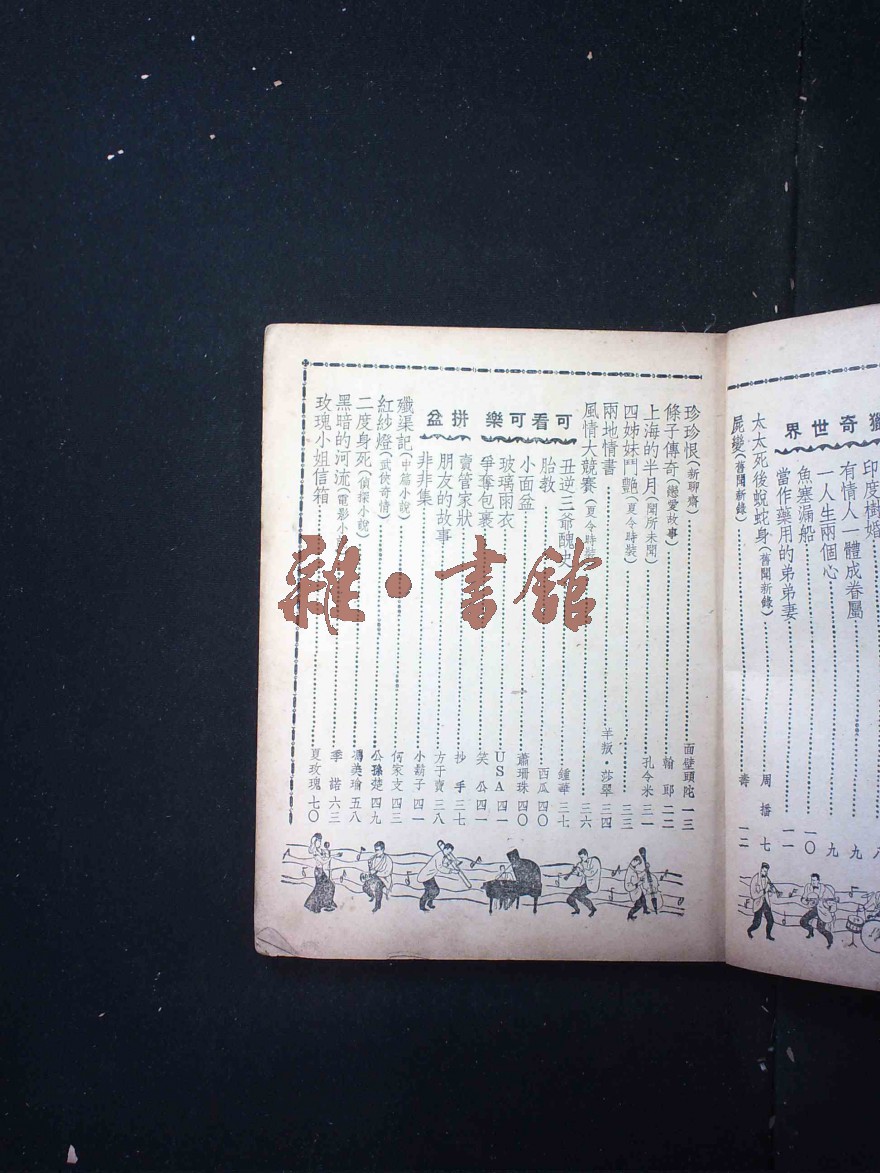 獵奇世界
印度樹婚 八
有情人一體成眷屬 九
一人生兩個心 九
魚塞漏船 一〇
當作藥用的弟弟妻 一一
太太死後蛻蛇身(舊聞新錄) 周播 七
屍變(舊聞新錄) 壽 一二
珍珍恨(新聊齋) 面壁頭陀 一三
條子傳奇(戀愛故事) 翰耶 二二
上海的半月(聞所未聞) 孔令米 三一
四姊妹鬥艷(夏令時裝) 三三
兩地情書 羊叛·莎翠 三四
風情大競賽(夏令時裝) 三六
可看可樂 拼盆
丑逆三爺醜史 鍾華 三七
胎教 西瓜 四〇
小面盆 蕭珊珠 四〇
玻璃雨衣 USA 四一
爭奪包裹 笑公 四一
賣管家狀 抄手 三七
朋友的故事 方于賣 三八
非非集 小鬍子 四一
殲渠記(中篇小說) 何家支 四三
紅紗燈(武俠奇情) 公孫楚 四九
二度身死(偵探小說) 馮美瑜 五八
黑暗的河流(電影小 季諾 六三
玫瑰小姐信箱 夏玫瑰 七〇
雜·書館